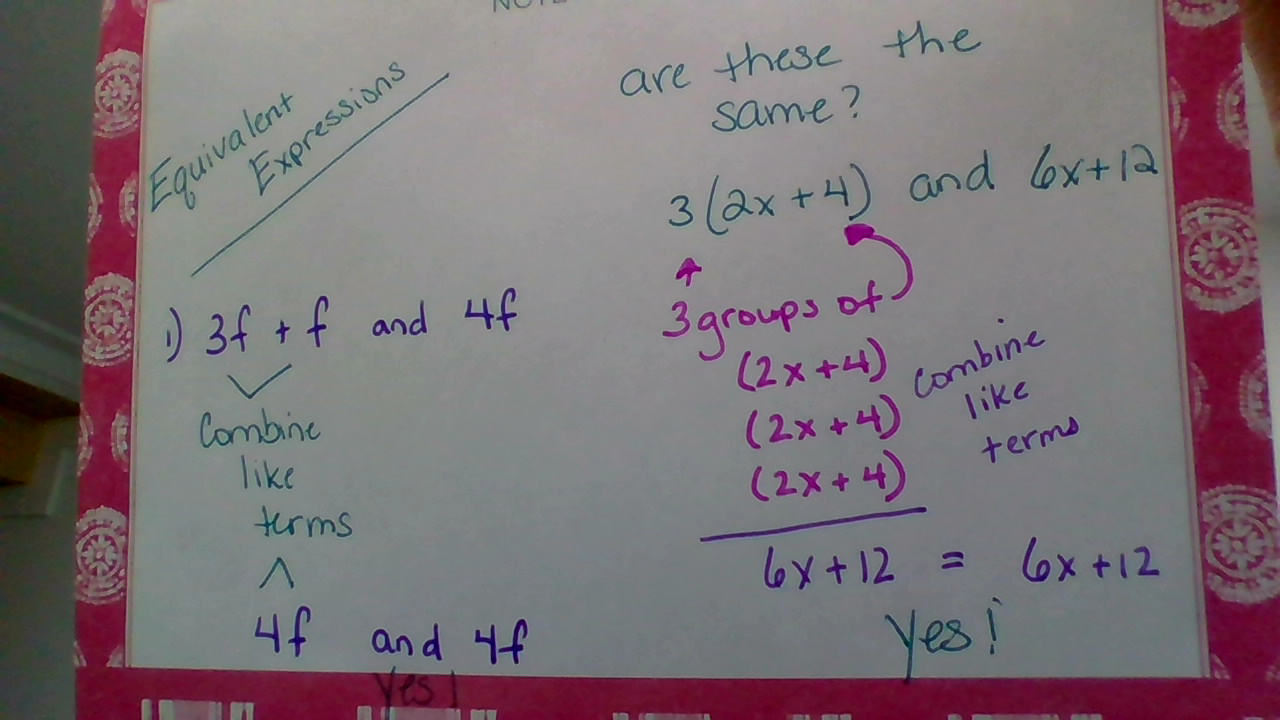 Equivalent
Expressions
1) 3f + f and 4f
Combine
like
terms
4f and 4f
Yes!
are these the
same?
3(2x+4) and 6x+12
3 groups of
(2x+4)
(2x+4)
(2x+4)
combine
like
terms
6x+12 = 6x+12
Yes!